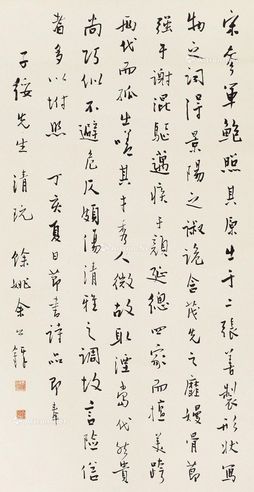 宋參軍鮑照其原生于二張善製形狀寫
物之詞得景陽之諔詭含茂先之靡嫚骨節
強于謝混驅邁疾于顏延總四家而擅美跨
兩代而孤生嗟其才秀人微故取湮當代然貴
尚巧似不避危反頗傷清雅之調故言險俗
者多以附照 丁亥夏日節書詩品即奉
子綏先生清玩 餘姚余